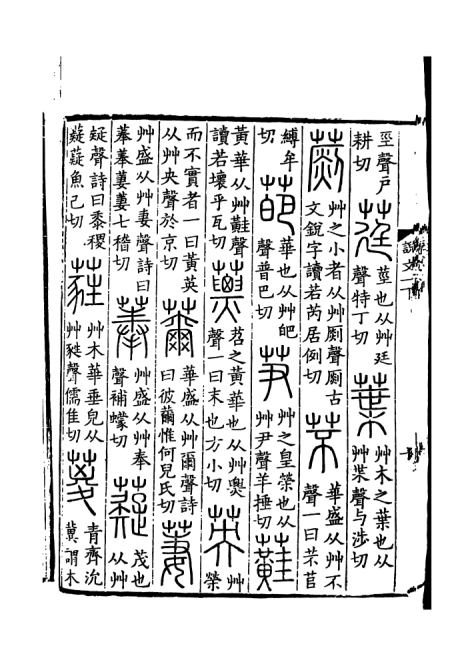 巠聲戶
耕切
莛
莖也从艸廷
聲特丁切
葉
艸木之葉也从
艸枼聲与涉切
艸之小者从艸𠟭聲𠟭古
文銳字讀若芮居例切
芣
華盛从艸不
聲一曰芣苢
縛牟
切
葩
華也从艸皅
聲普巴切
芛
艸之皇榮也从
艸尹聲羊捶切
蘳
黃華从艸黊聲
讀若壞乎瓦切
蔈
苕之黃華也从艸㶾
聲一曰末也方小切
英
艸
榮
而不實者一曰黃英
从艸央聲於京切
薾
華盛从艸爾聲詩
曰彼薾惟何兒氏切
萋
艸盛从艸妻聲詩曰
菶菶萋萋七稽切
菶
艸盛从艸奉
聲補蠓切
薿
茂也
从艸
疑聲詩曰黍稷
薿薿魚己切
蕤
艸木華垂皃从
艸甤聲儒隹切
葼
青齊沇
冀謂木